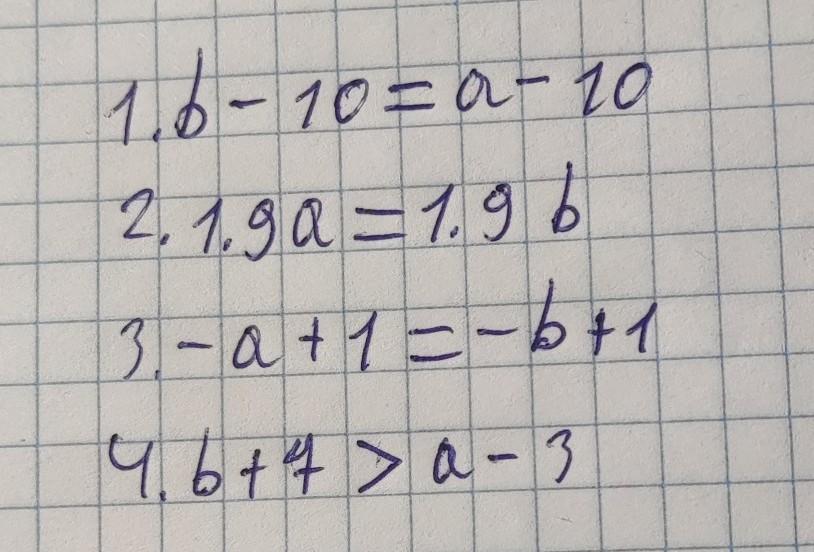 1. b - 10 = a - 10
2. 1.9a = 1.9 b
3. -a + 1 = -b + 1
4. b + 7 > a - 3